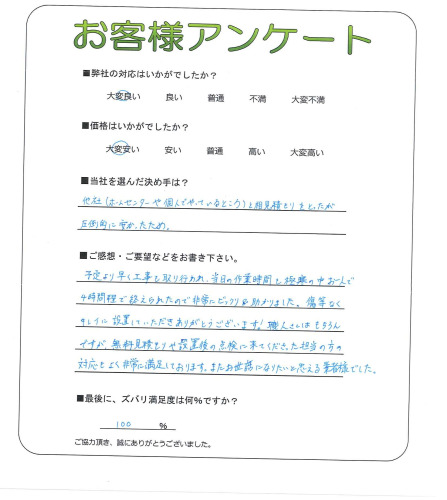 お客様アンケート
■弊社の対応はいかがでしたか？
大変良い 良い 普通 不満 大変不満
■価格はいかがでしたか？
大変安い 安い 普通 高い 大変高い
■当社を選んだ決め手は？
他社(ホームセンターや個人でやっているところ)と相見積もりをとったが
圧倒的に安かったため。
■ご感想・ご要望などをお書き下さい。
予定より早く工事を取り行われ、当日の作業時間も極寒の中お一人で
4時間程で終えられたので非常にビックリ&助かりました。傷等なく
キレイに設置していただきありがとうございます！職人さんはもちろん
ですが、無料見積もりや設置後の点検に来てくださった担当の方の
対応もよく非常に満足しております。またお世話になりたいと思える業者様でした。
■最後に、ズバリ満足度は何%ですか？
100 %
ご協力頂き、誠にありがとうございました。